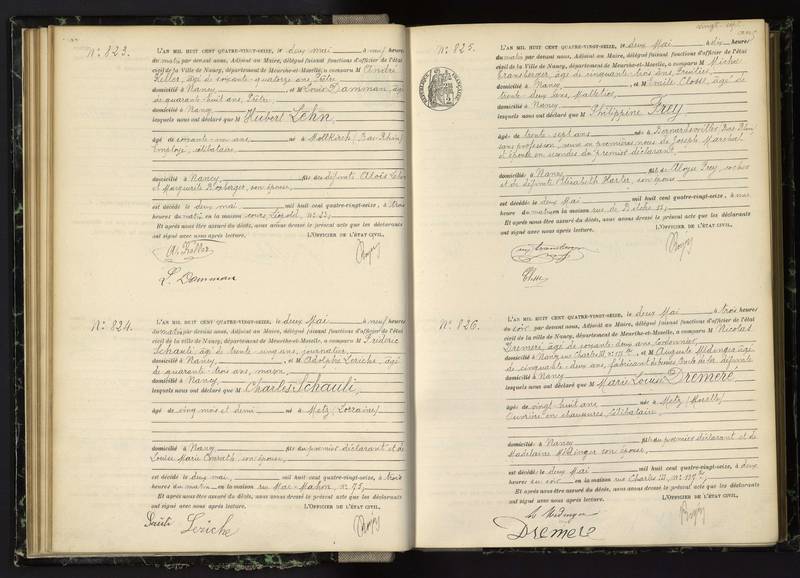 N° 823.
L'AN MIL HUIT CENT QUATRE-VINGT-SEIZE, le deux mai à neuf heures
du matin par devant nous, Adjoint au Maire, délégué faisant fonctions d'officier de l'état
civil de la Ville de Nancy, département de Meurthe-et-Moselle, a comparu M André
Keller, âgé de soixante quatorze ans, Prêtre
domicilié à Nancy, et M Louis Damman, âgé
de quarante huit ans, Prêtre
domicilié à Nancy
lesquels nous ont déclaré que M Hubert Lehn
âgé de soixante un ans né à Mollkirch (Bas-Rhin)
Employé, célibataire
domicilié à Nancy, fils des défunts Aloïs Lehn
et Marguerite Boxberger, son épouse
est décédé le deux mai mil huit cent quatre-vingt-seize, à trois
heures du matin en la maison cours Léopold, N° 33;
Et après nous être assuré du décès, nous avons dressé le présent acte que les déclarants
ont signé avec nous après lecture. L'OFFICIER DE L'ÉTAT CIVIL,
A. Keller
L. Damman
N° 824.
L'AN MIL HUIT CENT QUATRE-VINGT-SEIZE, le deux Mai à neuf heures
du matin par devant nous, Adjoint au Maire, délégué faisant fonctions d'officier de l'état
civil de la ville de Nancy, département de Meurthe-et-Moselle, a comparu M Fréderic
Schauli, âgé de trente un ans, journalier
domicilié à Nancy, et M Adolphe Leriche, âgé
de quarante trois ans, maçon
domicilié à Nancy
lesquels nous ont déclaré que M Charles Schauli
âgé de cinq mois et demi né à Metz (Lorraine)
domicilié à Nancy fils du premier déclarant et de
Louise Marie Conrath, son épouse
est décédé le deux mai, mil huit cent quatre-vingt-seize, à trois
heures du matin en la maison rue Mac-Mahon, N° 75;
Et après nous être assuré du décès, nous avons dressé le présent acte que les déclarants
ont signé avec nous après lecture. L'OFFICIER DE L'ÉTAT CIVIL,
Leriche
vingt sept
N° 825.
L'AN MIL HUIT CENT QUATRE-VINGT-SEIZE, le deux Mai à dix heures
du matin par devant nous, Adjoint au Maire, délégué faisant fonctions d'officier de l'état
civil de la Ville de Nancy, département de Meurthe-et-Moselle, a comparu M Michel
Transberger, âgé de cinquante trois ans, Fruitier
domicilié à Nancy, et M Emile Closse, âgé de
trente deux ans, Malletier
domicilié à Nancy
lesquels nous ont déclaré que M Philippine Frey
âgée de trente sept ans née à Bernardsviller, Bas Rhin
sans profession, veuve en premières noces de Joseph Maréchal
et épouse en secondes du premier déclarant
domicilié à Nancy fille de Aloyse Frey, cocher
et de défunte Elisabeth Harter, son épouse
est décédé le deux Mai mil huit cent quatre-vingt-seize, à une
heure du matin en la maison rue de Bitche 53;
Et après nous être assuré du décès, nous avons dressé le présent acte que les déclarants
ont signé avec nous après lecture. L'OFFICIER DE L'ÉTAT CIVIL,
N° 826.
L'AN MIL HUIT CENT QUATRE-VINGT-SEIZE, le deux Mai à trois heures
du soir par devant nous, Adjoint au Maire, délégué faisant fonctions d'officier de l'état
civil de la ville de Nancy, département de Meurthe-et-Moselle, a comparu M Nicolas
Dremeré, âgé de soixante deux ans, Cordonnier
domicilié à Nancy rue Charles III, et M Auguste Médinger âgé
de cinquante deux ans, fabricant de formes, Oncle de la défunte
domicilié à Nancy
lesquels nous ont déclaré que M Marie Louise Dremeré
âgée de vingt huit ans née à Metz (Moselle)
Ouvrière en chaussures, célibataire
domicilié à Nancy fille du premier déclarant et de
Madelaine Médinger son épouse
est décédé le deux Mai mil huit cent quatre-vingt-seize, à deux
heures du soir en la maison rue Charles III
Et après nous être assuré du décès, nous avons dressé le présent acte que les déclarants
ont signé avec nous après lecture. L'OFFICIER DE L'ÉTAT CIVIL,
A Medinger
Dremeré